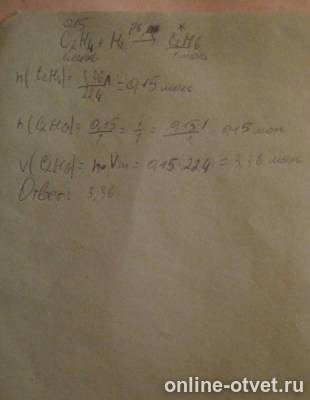 0,15 x
C2H4 + H2 → C2H6
1 моль 1 моль
n(C2H4) = 3,36л/22,4 = 0,15 моль
n(C2H6) = 0,15/1 = x/1 = 0,15·1/1 = 0,15 моль
V(C2H6) = n·Vm = 0,15·22,4 = 3,36 моль
Ответ: 3,36
online-otvet.ru